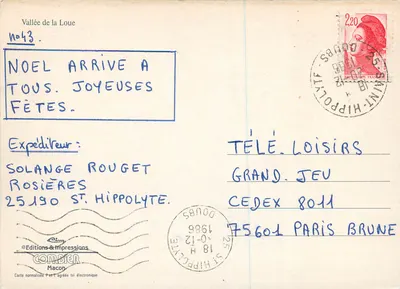 Vallée de la Loue
no43.
NOEL ARRIVE A
TOUS. JOYEUSES
FÊTES.
Expéditeur:
SOLANGE ROUGET
ROSIÈRES
25190 ST. HIPPOLYTE.
2,20
25-SAINT-HIPPOLYTE-
DOUBS
TÉLÉ. LOISIRS
GRAND. JEU
CEDEX 8011
75601 PARIS BRUNE
25-ST-HIPPOLYTE
18 H
0-12
1986
DOUBS
Editions & Impressions
COMBIER
Macon